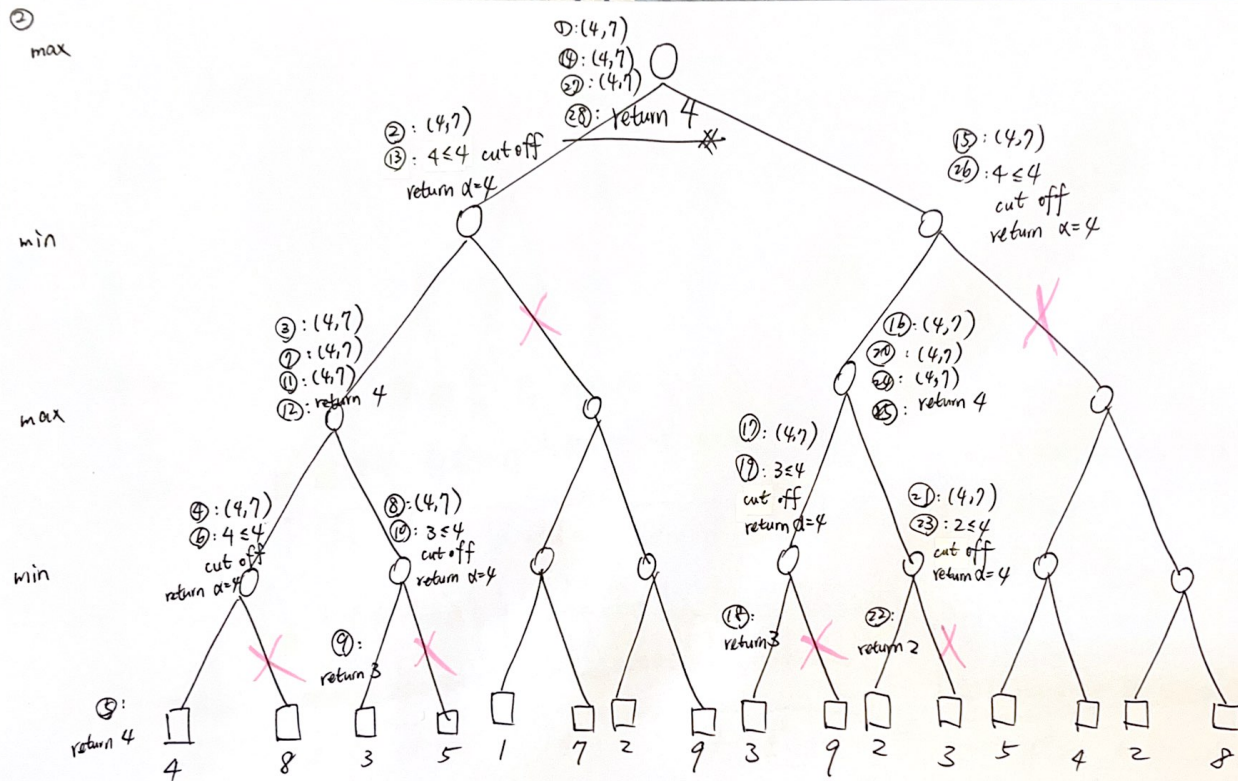 ②
max
①:(4,7)
⑭:(4,7)
㉗:(4,7)
㉘: return 4
②: (4,7)
⑬: 4≤4 cut off
return α=4
⑮: (4,7)
㉖: 4≤4
cut off
return α=4
min
③: (4,7)
⑦: (4,7)
⑪: (4,7)
⑫: return 4
⑯: (4,7)
⑳: (4,7)
㉔: (4,7)
㉕: return 4
max
④: (4,7)
⑥: 4≤4
cut off
return α=4
⑧: (4,7)
⑩: 3≤4
cut off
return α=4
⑰: (4,7)
⑲: 3≤4
cut off
return α=4
㉑: (4,7)
㉓: 2≤4
cut off
return α=4
min
⑨:
return 3
⑱:
return 3
㉒:
return 2
⑤:
return 4
4 8 3 5 1 7 2 9 3 9 2 3 5 4 2 8